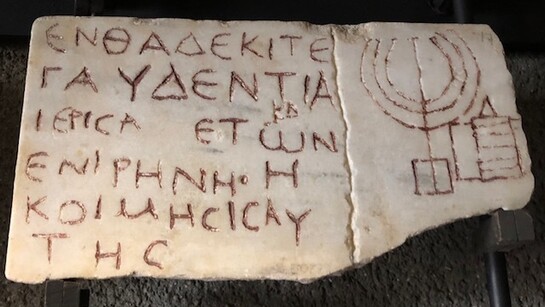 ΕΝΘΑΔΕΚΙΤΕ
ΓΑΥΔΕΝΤΙΑ
ΙΕΡΙCΑ ΕΤΩΝ ΚΔ
ΕΝΙΡΗΝΗ·Η
ΚΟΙΜΗCΙCΑΥ
ΤΗC